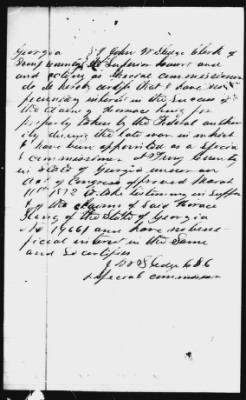 Georgia I John W Sledge Clerk of
County Superior Court and
and acting as Special commissioner
do hereby certify that I have no
pecuniary interest in the success of
the claim of Horace King for
property taken by the Federal author
ity during the late war in which
I have been appointed as a Special
Commissioner at Troup County
in State of Georgia under an
Act of Congress approved March
1872 to take testimony in support
of the claims of Said Horace
King of the State of Georgia
No 19661 and have no bene-
ficial interest in the Same
and So certifies
J W Sledge
Special commissioner